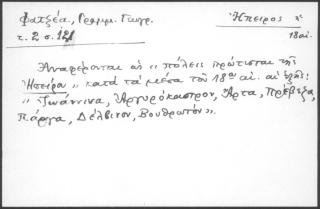 Φατζέα, Γραμμ. Γεωγρ. Ἤπειρος
τ. 2 σ. 121 18 αἰ.
Ἀναφέρονται αἱ "πόλεις πρώτισται τῆς
Ἠπείρου" κατὰ τὰ μέσα τοῦ 18ου αἰ. αἱ ἑξῆς:
"Ἰωάννινα, Ἀργυρόκαστρον, Ἄρτα, Πρέβεζα,
Πάργα, Δέλβινον, Βουθρωτόν".